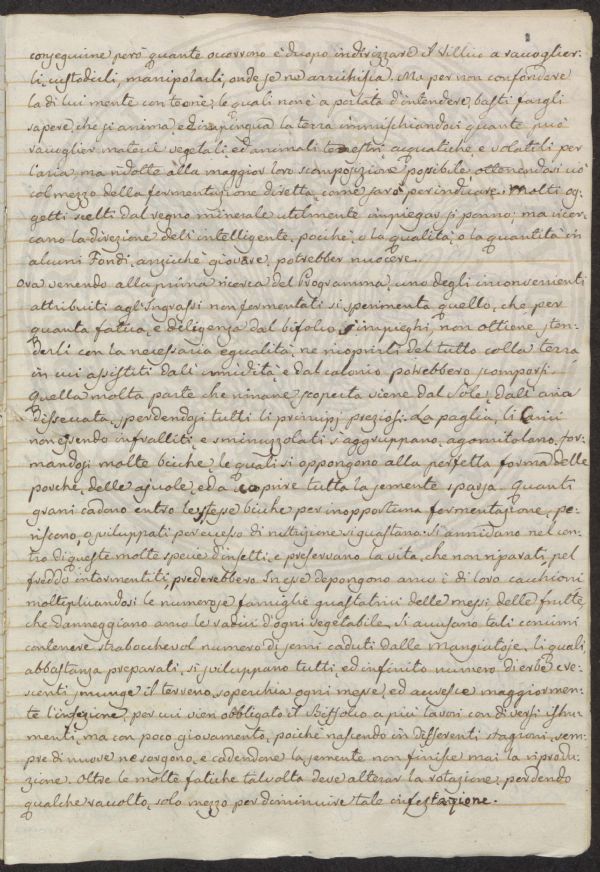 conseguirne però quante occorrono è duopo indirizzare il Villico a raccoglier-
li, custodirli, manipolarli, onde se ne arrichisca. Ma per non confondere
la di lui mente con teorie, le quali non è a portata d'intendere, basti fargli
sapere, che si anima, ed impingua la terra immischiandovi quante può
raccoglier materie vegetali ed animali terrestri acquatiche e volatili per
l'aria, ma ridotte alla maggior loro scomposizione possibile ottenendosi ciò
col mezzo della fermentazione diretta, come sarò per indicare. Molti og-
getti scelti dal regno minerale utilmente impiegar si ponno; ma ricer-
cano la direzione dell'intelligente, poichè, o la qualità, o la quantità in
alcuni Fondi, anzicchè giovare, potrebber nuocere.
Ora venendo alla prima ricerca del Programma, uno degli inconvenienti
attribuiti agl'Ingrassi non fermentati si sperimenta quello, che per
quanta fatica, e diligenza dal bifolco s'impieghi, non ottiene sten-
derli con la necessaria egualità, ne ricoprirli del tutto colla terra
in cui assistiti dall'umidità, e dal calorico potrebbero scomporsi.
Quella molta parte che rimane scoperta viene dal Sole, dall'aria
dissecata, sperdendosi tutti li principj preziosi. La paglia, li
non essendo infralliti e sminuzzolati s'aggruppano, agomitolano, for-
mandosi molte biche, le quali si oppongono alla perfetta forma delle
porche, delle ajuole, ed a coprire tutta la semente sparsa. Quanti
grani cadono entro le stesse biche per inopportuna fermentazione, pe-
riscono, o sviluppati per eccesso di nutrizione si guastano. Si annidano nel cen-
tro di queste molte specie d'insetti, e preservano la vita, che non riparati, pel
freddo intormentiti, perderebbero. In esse depongono anco i di loro cacchioni
moltiplicandosi le numerose famiglie guastatrici delle messi, delle frutte,
che danneggiano anco le radici d'ogni vegetabile. Si accusano tali concimi
contenere strabocchevol numero di semi caduti dalle mangiatoje, li quali
abbastanza preparati, si sviluppano tutti, ed infinito numero di erbe cre-
scenti smunge il terreno, soperchia ogni messe, ed accresce maggiormen-
te l'infezione, per cui vien obbligato il Biffolco a più lavori con diversi istru-
menti, ma con poco giovamento, poichè nascendo in differenti stagioni, sem-
pre di nuove ne sorgono, e cadendone la semente non finisce mai la riprodu-
zione. Oltre le molte fatiche talvolta deve alterar la rotazione, perdendo
qualche raccolto, solo mezzo per diminuire tale infestazione.